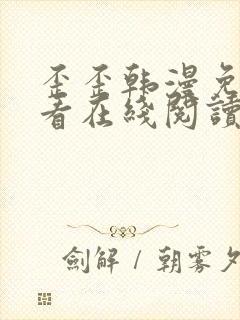 歪歪韩漫免
者在线阅读
剑解 / 朝雾夕